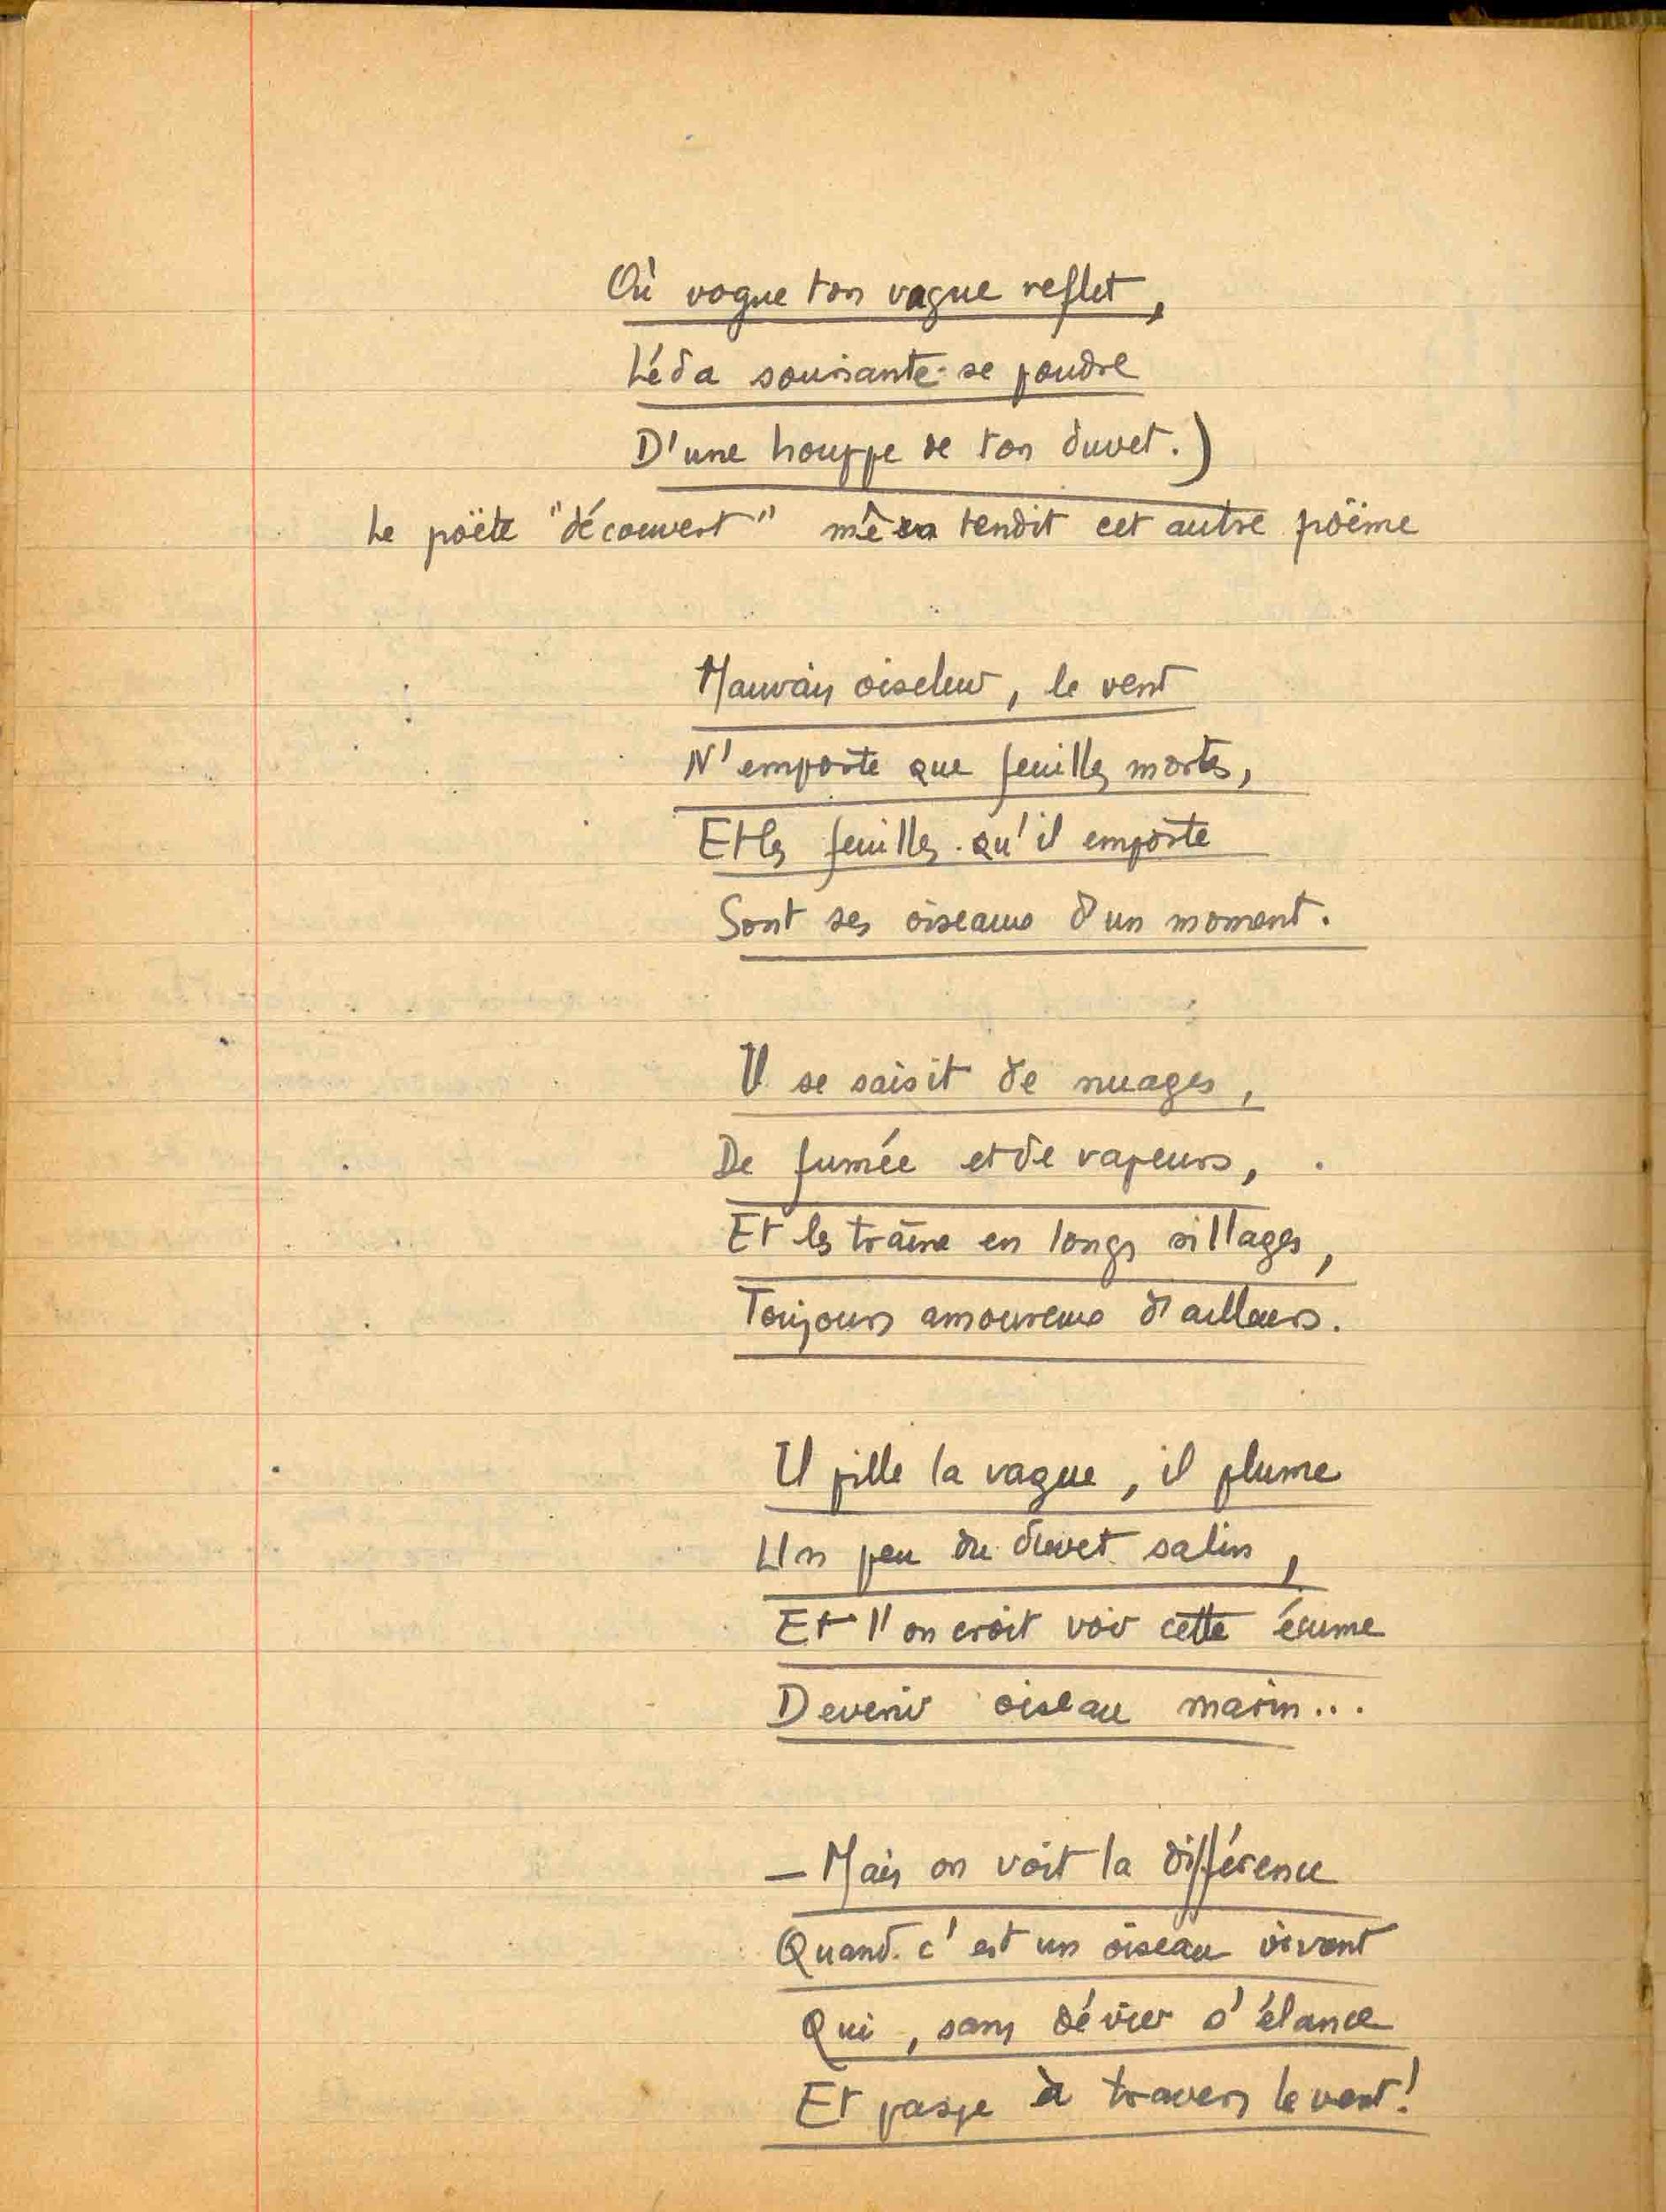 Où vogue ton vague reflet,
Léda souriante se poudre
D'une houppe de ton duvet.)
Le poëte "découvert" me tendit cet autre poëme
Mauvais oiseleur, le vent
N'emporte que feuilles mortes,
Et les feuilles qu'il emporte
Sont ses oiseaux d'un moment.
Il se saisit de nuages,
De fumée et de vapeurs,
Et les traîne en longs sillages,
Toujours amoureux d'ailleurs.
Il pille la vague, il plume
Un peu du duvet salin,
Et l'on croit voir cette écume
Devenir oiseau marin...
— Mais on voit la différence
Quand c'est un oiseau vivant
Qui, sans dévier s'élance
Et passe à travers le vent!